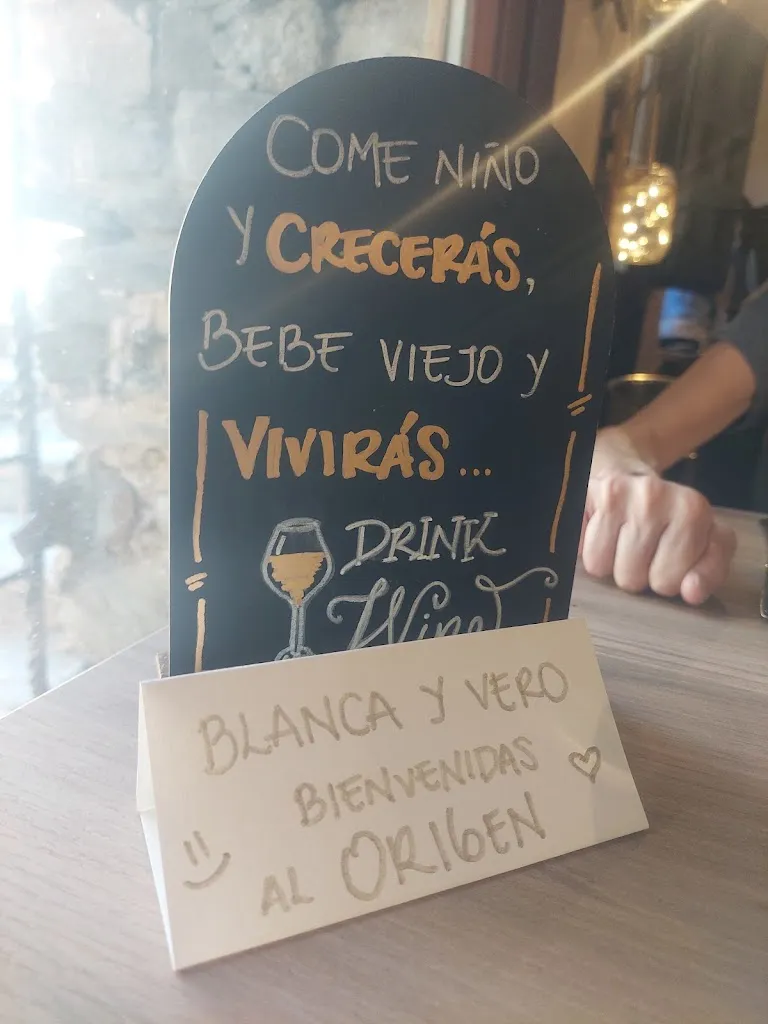 COME NIÑO
Y CRECERÁS,
BEBE VIEJO Y
VIVIRÁS...
DRINK
Wine
BLANCA Y VERO
BIENVENIDAS
AL ORIGEN